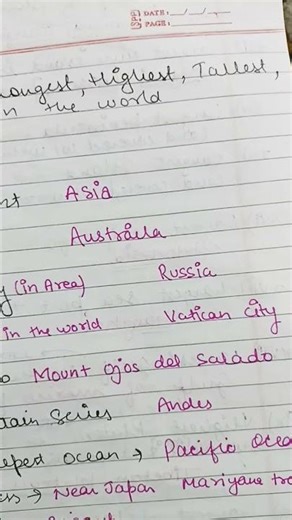 DATE: / /
PAGE:
Longest, Highest, Tallest,
in the world
Asia
Austrailla
(in Area) Russia
in the world Vatican City
Mount Ojos dal Salado
Series Andes
Ocean → Pacific
→ Near Japan Mariyane